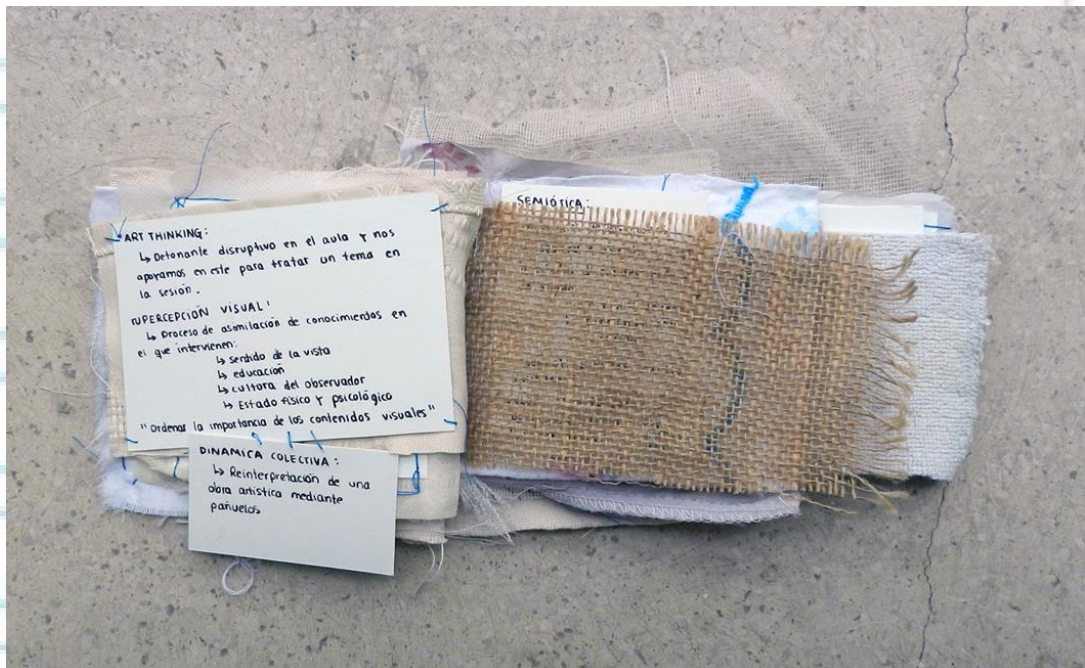 ART THINKING:
↳ Detonante disruptivo en el aula y nos
apoyamos en este para tratar un tema en
la sesión.
PERCEPCIÓN VISUAL:
↳ Proceso de asimilación de conocimientos en
el que intervienen:
↳ sentido de la vista
↳ educación
↳ cultura del observador
↳ Estado físico y psicológico
"Ordenar la importancia de los contenidos visuales"
DINÁMICA COLECTIVA:
↳ Reinterpretación de una
obra artística mediante
pañuelos
SEMIÓTICA: